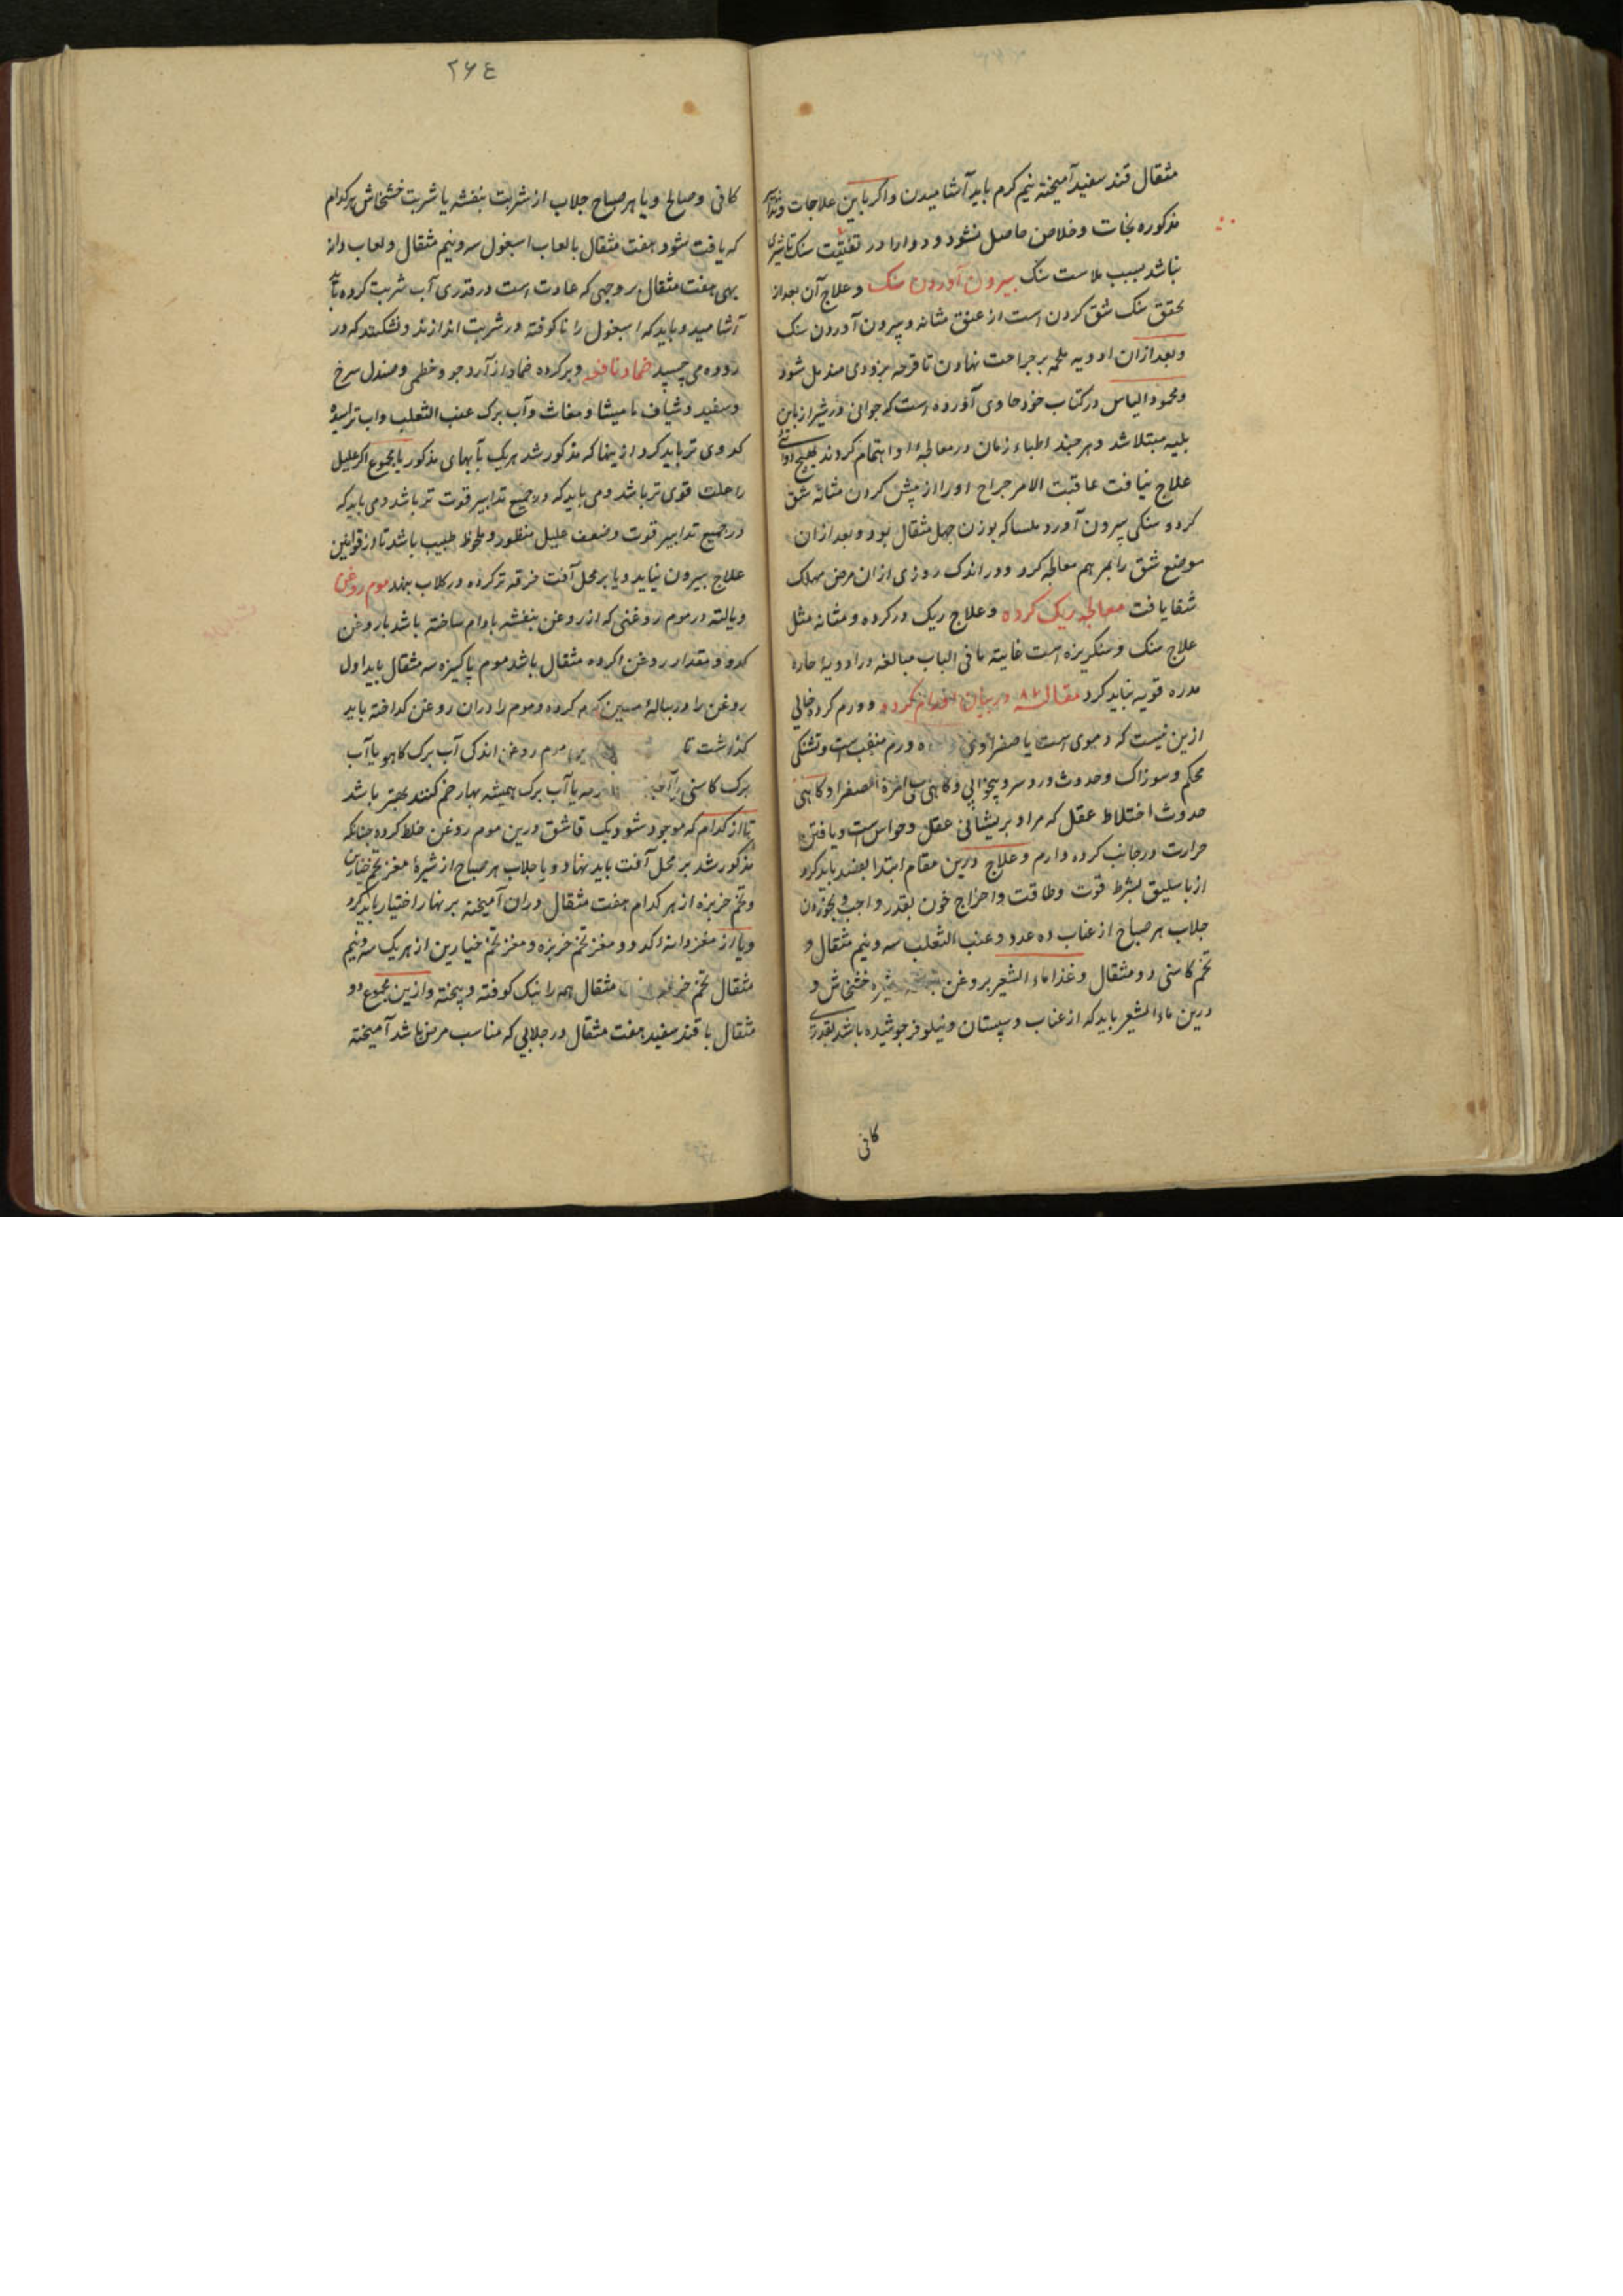 مثقال قند سفید آمیخته نیم کرم باید آشامیدن واکر باین علاجات
مذکوره نجات و خلاص حاصل نشود و دوا را در تفتیت سنک تاثیری
نباشد بسبب ملاست سنک بیرون آوردن سنک و علاج آن بعد از
تحقق سنک شق کردن است از عنق مثانه و بیرون آوردن سنک
و بعد ازان ادویه ملحمه بر جراحت نهادن تا قرحه بزودی مندمل شود
و محمود الیاس در کتاب خود حاوی آورده است که جوانی در شیراز باین
بلیه مبتلا شد و هر چند اطباء زمان در معالجهٔ او اهتمام کردند بهیچ دوائی
علاج نیافت عاقبت الامر جراح اورا از پیش کردن مثانه شق
کرد و سنکی بیرون آورد ملسا که بوزن چهل مثقال بود و بعد ازان
موضع شق را بمرهم معالجه کرد و در اندک روزی ازان مرض مهلک
شفا یافت معالجه ریک کرده و علاج ریک در کرده و مثانه مثل
علاج سنک و سنکریزه است غایته ما فی الباب مبالغه در ادویهٔ حاره
مدره قویه نباید کرد مقاله ۸۲ در بیان کرده و ورم کرده خالی
ازین نیست که دموی است یا صفراوی ورم منقب است و تشنکی
محکم و سوزاک و حدوث درد سر و بیخوابی و کاهی قی المرة الصفرا و کاهی
حدوث اختلاط عقل که مراد پریشانی عقل و حواس است و یافتن
حرارت در جانب کرده وارم و علاج درین مقام ابتدا بفصد باید کرد
از باسلیق بشرط قوت و طاقت و اخراج خون بقدر واجب و
جلاب هر صباح از عناب ده عدد و عنب الثعلب سه و نیم مثقال و
تخم کاسنی دو مثقال و غذا ماء الشعیر بروغن شیره خشخاش و
درین ماء الشعیر باید که از عناب و سپستان و نیلوفر جوشیده باشد بقدری
کافی
۲۶٤
کافی و صالح و یا هر صباح جلاب از شربت بنفشه یا شربت خشخاش هر کدام
که یافت شود هفت مثقال بالعاب اسبغول سه و نیم مثقال و لعاب دانه
بهی هفت مثقال بر وجهی که عادت است در قدری آب شربت کرده باید
آشامید و باید که اسبغول را ناکوفته در شربت اندازند و نشکنند که در
روده می چسپد ضماد نافعه و بر کرده ضماد از آرد جو و خطمی و صندل سرخ
و سفید و شیاف مامیشا و مغاث و آب برک عنب الثعلب و آب تراشهٔ
کدوی تر باید کرد ازینها که مذکور شد هر یک بآبهای مذکور یا مجموع اکر علیل
را علت قوی تر باشد و می باید که در جمیع تدابیر قوت تر باشد و می باید که
در جمیع تدابیر قوت و ضعف علیل منظور و ملحوظ طبیب باشد تا از قوانین
علاج بیرون نیاید و یا بر محل آفت خرقه تر کرده در کلاب نهند موم روغن
و یا لته در موم روغنی که از روغن بنفشه بادام ساخته باشد یا روغن
کدو و مقدار روغن اکر ده مثقال باشد موم پاکیزه سه مثقال باید اول
روغن را در پیالهٔ مسین کرم کرده و موم را دران روغن کداخته باید
کذاشت تا موم روغن اندکی آب برک کاهو یا آب
برک کاسنی یا آب یا آب برک همیشه بهار ضم کنند بهتر باشد
تا از کدام که موجود شود یک قاشق درین موم روغن خلط کرده چنانکه
مذکور شد بر محل آفت باید نهاد و یا جلاب هر صباح از شیرهٔ مغز تخم خیارین
و تخم خربزه از هر کدام هفت مثقال دران آمیخته بر نهار اختیار باید کرد
و یا از مغز دانه کدو و مغز تخم خربزه و مغز تخم خیارین از هر یک سه و نیم
مثقال تخم مثقال همه را نیک کوفته و بیخته و ازین مجموع دو
مثقال با قند سفید هفت مثقال در جلابی که مناسب مرض باشد آمیخته